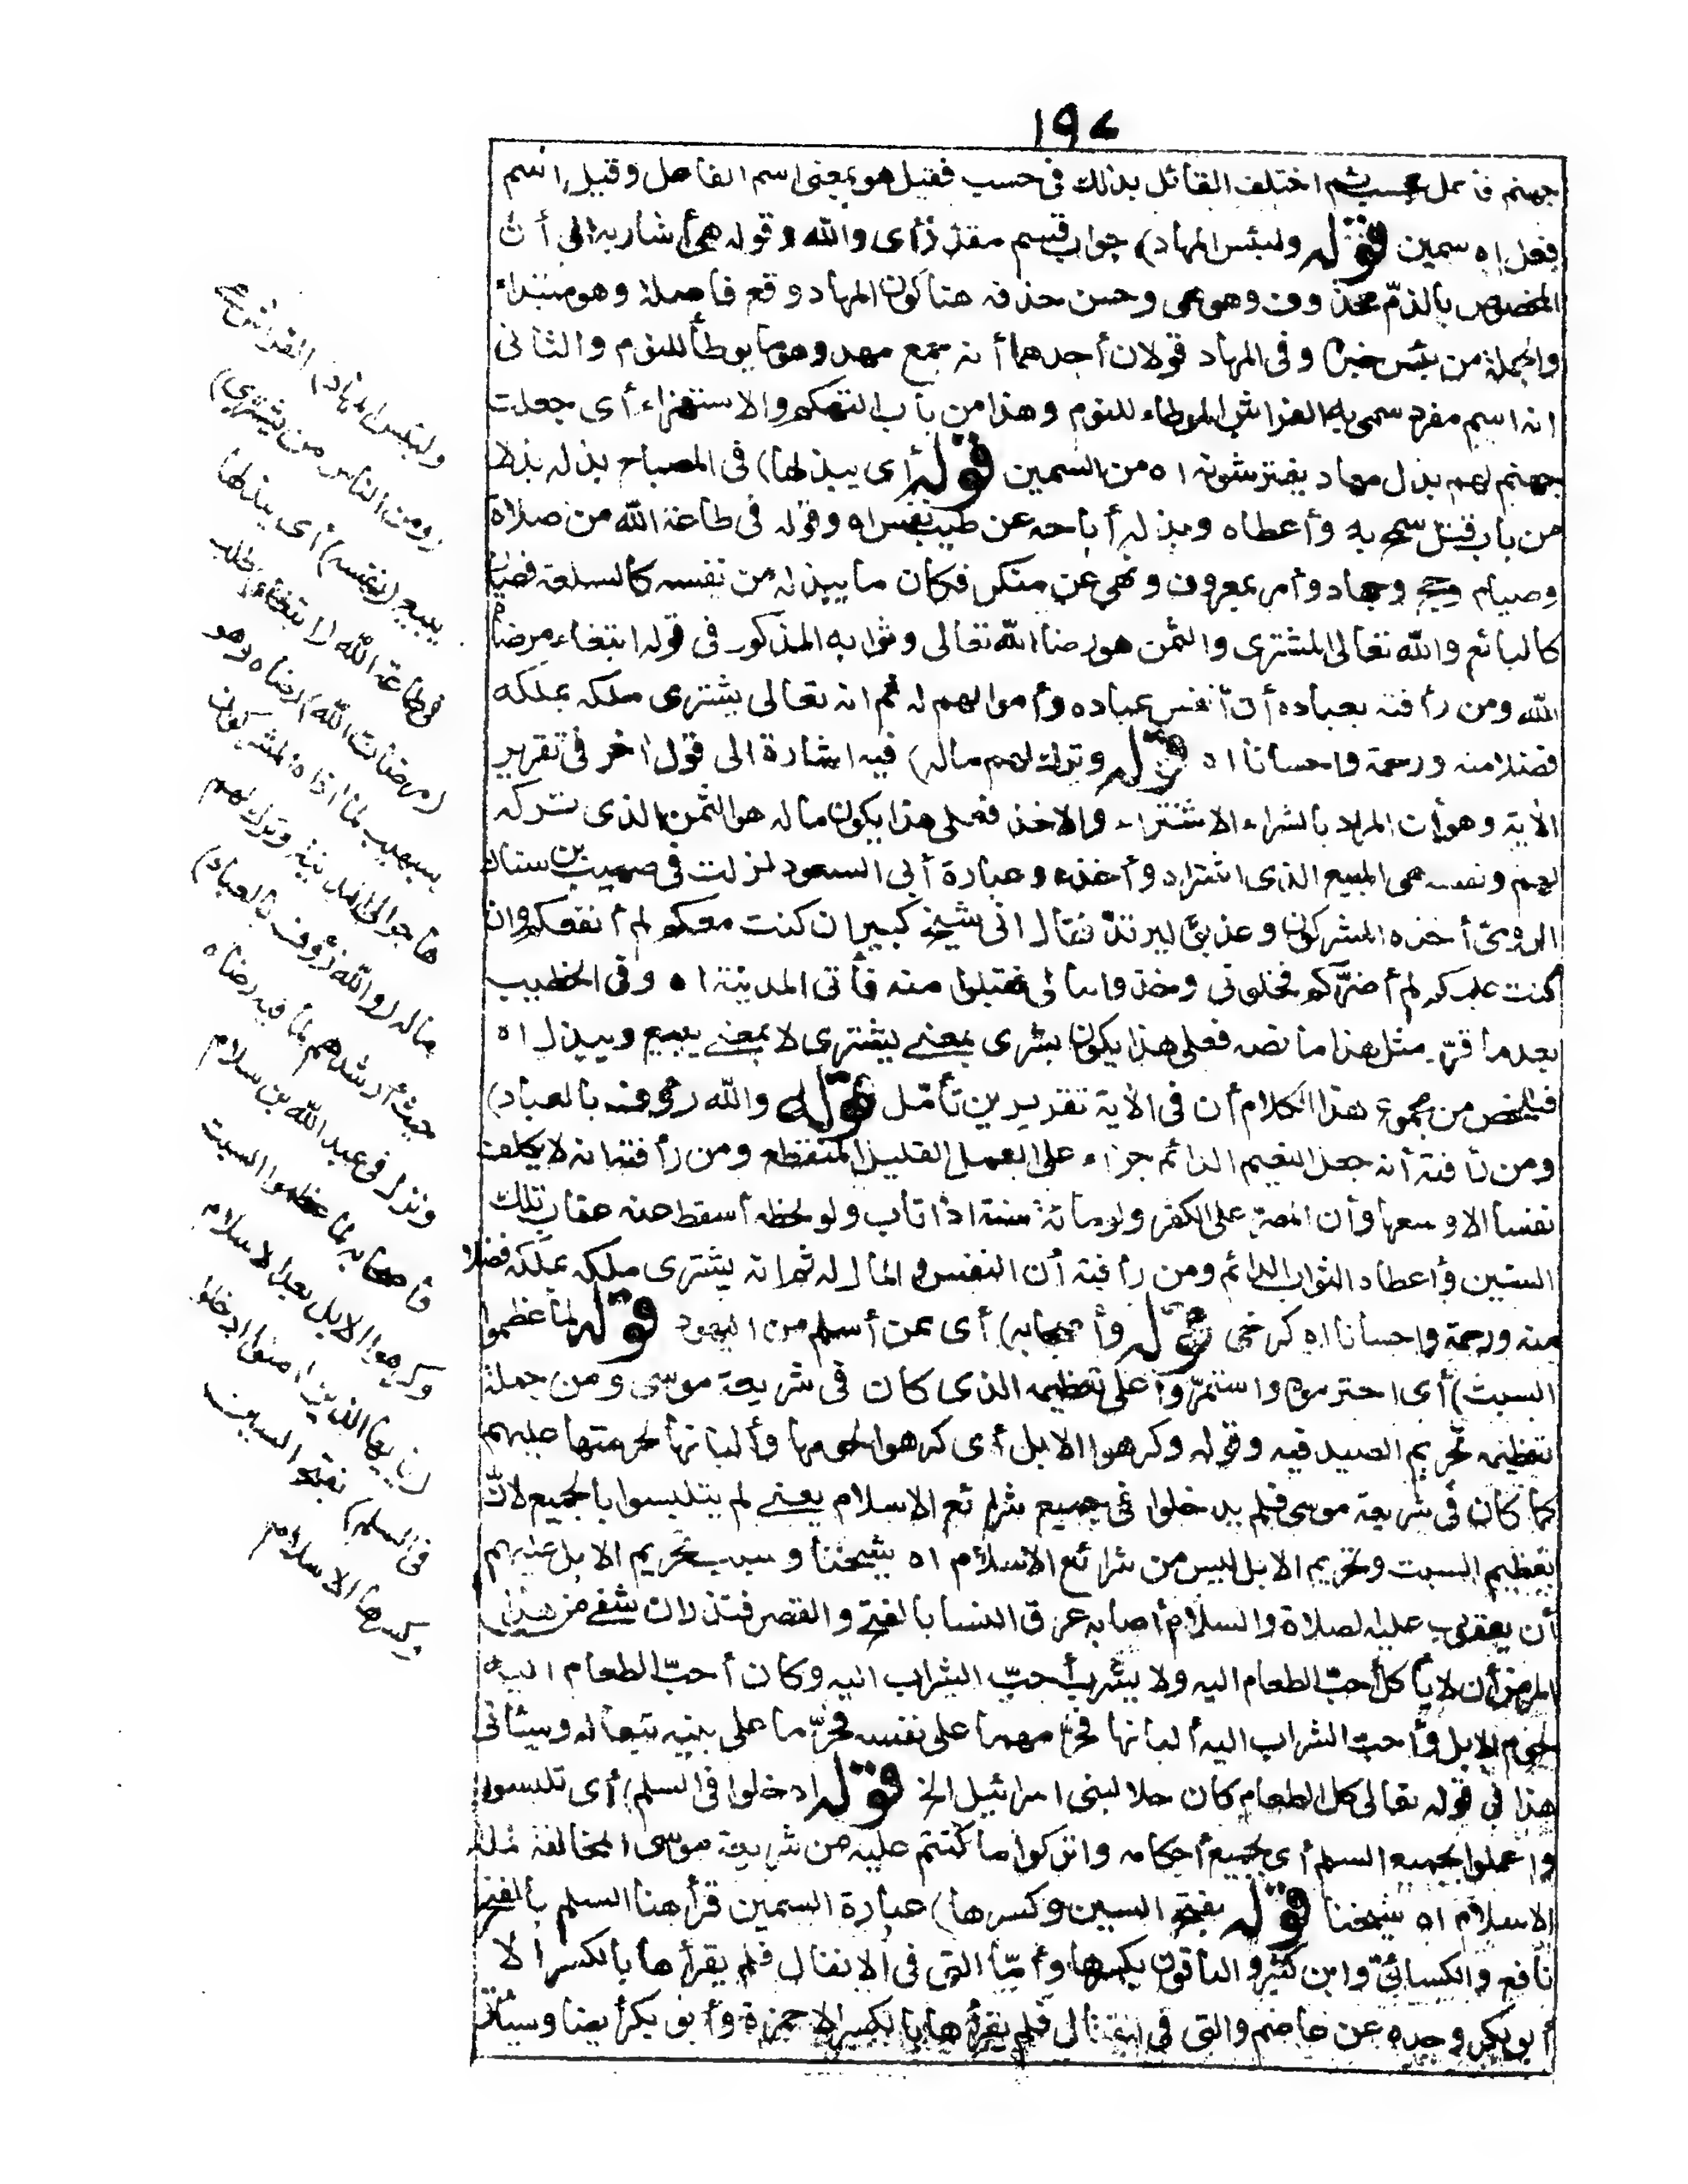 ١٩٤
جهنم فاعل حسب ثم اختلف القائل بذلك فى حسب فقيل هو بمعنى اسم الفاعل وقيل اسم
فعل اه سمين قوله ولبئس المهاد) جواب قسم مقدر أى والله وقوله هى أشار به الى أن
المخصوص بالذم محذوف وهو هى وحسن حذفه هنا كون المهاد وقع فاصلة وهو مبتداء
والجملة من بئس خبره وفى المهاد قولان أحدهما أنه جمع مهد وهو ما يوطأ للنوم والثانى
انه اسم مفرد سمى به الفراش الموطاء للنوم وهذا من باب التهكم والاستهزاء أى جعلت
جهنم لهم بدل مهاد يفترشونه اه من السمين قوله أى يبذلها) فى المصباح بذله بذلا
من باب قتل سمح به وأعطاه وبذله أباحه عن طيب نفس اه وقوله فى طاعة الله من صلاة
وصيام وحج وجهاد وأمر بمعروف ونهى عن منكر فكان ما يبذله من نفسه كالسلعة فصار
كالبائع والله تعالى المشترى والثمن هو رضا الله تعالى وثوابه المذكور فى قوله ابتغاء مرضاة
الله ومن رأفته بعباده أن أنفس عباده وأموالهم له ثم انه تعالى يشترى ملكه بملكه
فضلا منه ورحمة واحسانا اه قوله وترك لهم ماله) فيه اشارة الى قول اخر فى تقرير
الأية وهو أن المراد بالشراء الاشتراء والاخذ فعلى هذا يكون ماله هو الثمن الذى تركه
لهم ونفسه هى المبيع الذى اشتراه وأخذه وعبارة أبى السعود نزلت فى صهيب بن سنان
الرومى أخذه المشركون وعذبوه ليرتد فقال انى شيخ كبير ان كنت معكم لم أنفعكم وان
كنت عليكم لم أضركم فخلونى وخذوا مالى فقبلوا منه فأتى المدينة اه وفى الخطيب
بعد ما قرر مثل هذا ما نصه فعلى هذا يكون يشرى بمعنى يشترى لا بمعنى يبيع ويبذل اه
فتلخص من مجموع هذا الكلام أن فى الأية تقريرين تأمل قوله والله رؤوف بالعباد)
ومن رأفته أنه جعل النعيم الدائم جزاء على العمل القليل المنقطع ومن رأفته انه لا يكلف
نفسا الا وسعها وأن المصر على الكفر ولو مائة سنة اذا تاب ولو لحظة أسقط عنه عقاب تلك
السنين وأعطاه الثواب الدائم ومن رأفته أن النفس والمال له ثم انه يشترى ملكه بملكه فضلا
منه ورحمة واحسانا اه كرخى قوله وأصحابه) أى ممن أسلم من اليهود قوله لما عظموا
السبت) أى احترموه واستمروا على تعظيمه الذى كان فى شريعة موسى ومن جملة
تعظيمه تحريم الصيد فيه وقوله وكرهوا الابل أى كرهوا لحومها وألبانها لحرمتها عليهم
كما كان فى شريعة موسى فلم يدخلوا فى جميع شرائع الاسلام يعنى لم يتلبسوا بالجميع لان
تعظيم السبت وتحريم الابل ليس من شرائع الاسلام اه شيخنا وسبب تحريم الابل عليهم
أن يعقوب عليه الصلاة والسلام أصابه عرق النسا بالفتح والقصر فنذر ان شفى من هذا
المرض أن لا يأكل أحب الطعام اليه ولا يشرب أحب الشراب اليه وكان أحب الطعام اليه
لحوم الابل وأحب الشراب اليه ألبانها فحرمهما على نفسه فحرما على بنيه تبعا له وسيأتى
هذا فى قوله تعالى كل الطعام كان حلا لبنى اسرائيل الخ قوله ادخلوا فى السلم) أى تلبسوا
واعملوا بجميع السلم أى بجميع أحكامه واتركوا ما كنتم عليه من شريعة موسى المخالفة لملة
الاسلام اه شيخنا قوله بفتح السين وكسرها) عبارة السمين قرأ هنا السلم بالفتح
نافع والكسائى وابن كثير والباقون بكسرها وأما التى فى الانفال فلم يقرأها بالكسر الا
أبو بكر وحده عن عاصم والتى فى القتال فلم يقرأها بالكسر الا حمزة وأبو بكر أيضا وسيأتى
ولبئس المهاد) الفراش هى
(ومن الناس من يشرى)
يبيع (نفسه) أى يبذلها
فى طاعة الله (ابتغاء) طلب
(مرضات الله) رضاه وهو
صهيب لما اذاه المشركون
هاجر الى المدينة وترك لهم
ماله (والله رؤوف بالعباد)
حيث أرشدهم لما فيه رضاه
ونزل فى عبد الله بن سلام
وأصحابه لما عظموا السبت
وكرهوا الابل بعد الاسلام
(يايها الذين امنوا ادخلوا
فى السلم) بفتح السين
وكسرها الاسلام